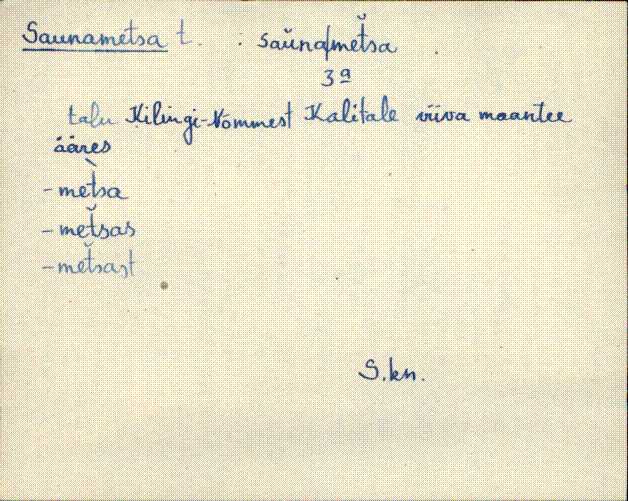 Saunametsa t. : saŭna/met̆sa
3ª
talu Kilingi-Nõmmest Kalitale viiva maantee
ääres
- met̀sa
- met̆sas
- met̆sast
S.kn.